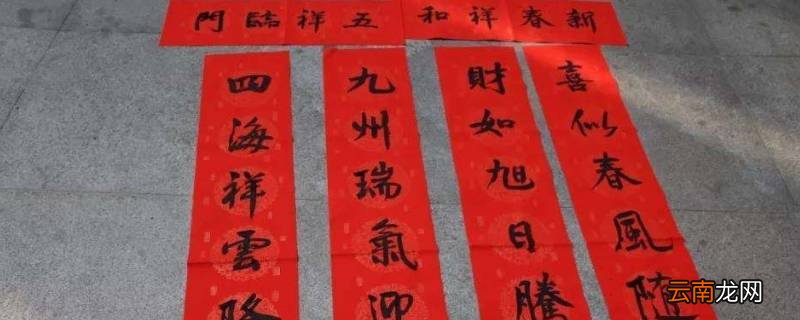 新春祥和
五祥臨門
喜似春風随
財如旭日騰
九州瑞氣迎
四海祥雲
云南龙网